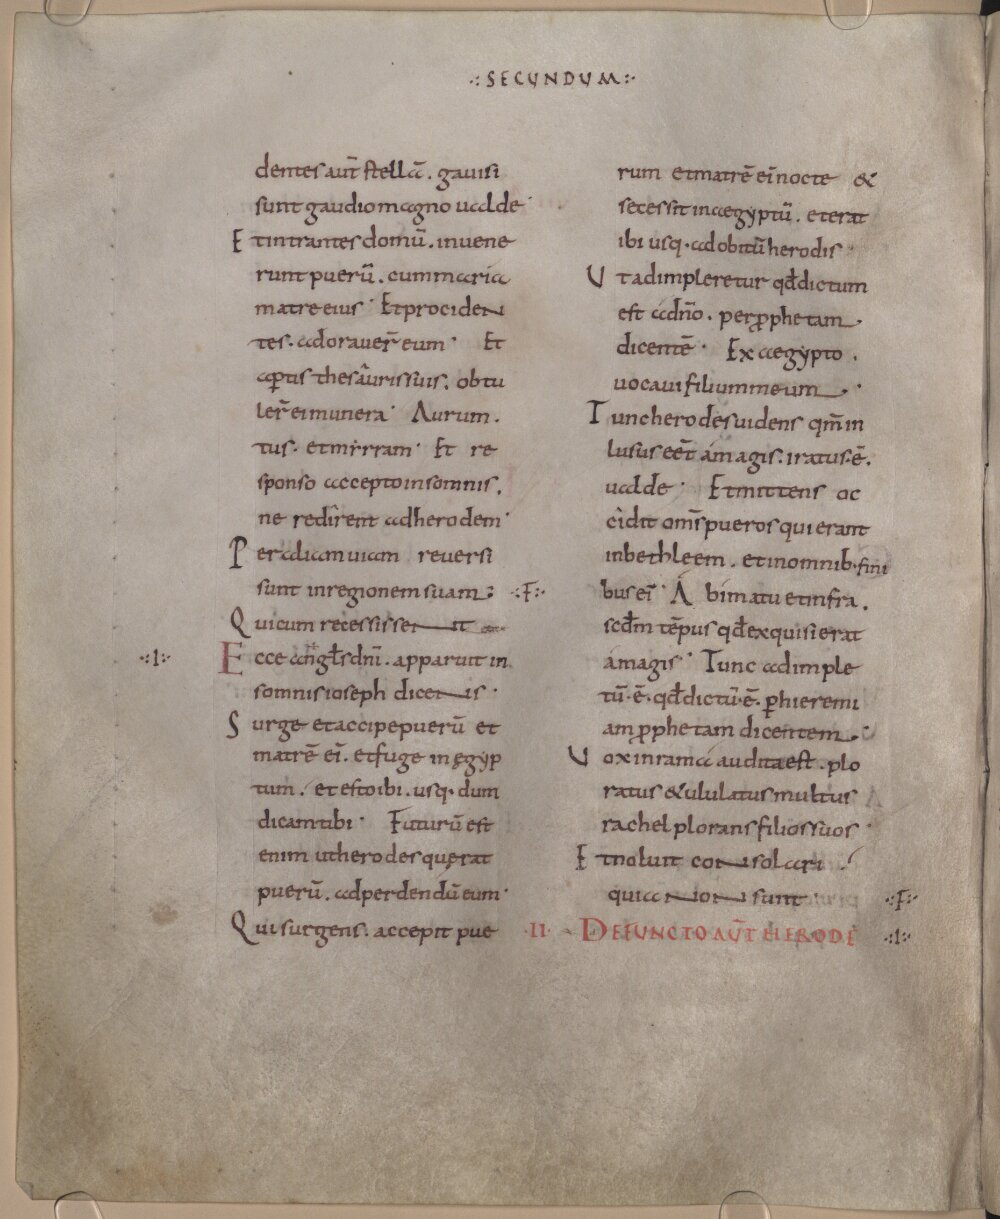 ·:SECUNDUM:·
dentes aut̄ stellā. gauisi
sunt gaudio magno ualde·
Et intrantes domū. inuene
runt puerū. cum maria
matre eius· Et prociden
tes. adorauer̄ eum· Et
aptis thesauris suis. obtu
ler̄ ei munera· Aurum.
tus. et mirram· Et re
sponso accepto in somnis.
ne redirent ad herodem·
Per aliam uiam reuersi
sunt in regionem suam: ·:F:·
Qui cum recessissent
·:I:· Ecce angl̄s dn̄i. apparuit in
somnis ioseph dicens·
Surge et accipe puerū et
matrē ei'. et fuge in egyp
tum. et esto ibi. usq· dum
dicam tibi· Futurū est
enim ut herodes querat
puerū. ad perdendū eum·
Qui surgens. accepit pue
rum et matrē ei' nocte &
secessit in aegyptū. et erat
ibi usq· ad obitū herodis·
Ut adimpleretur qd̄ dictum
est a dn̄o. per pphetam.
dicentē· Ex aegypto.
uocaui filium meum·
Tunc herodes uidens qm̄ in
lusus eēt a magis. iratus· ē.
ualde· Et mittens oc
cidit om̄s pueros qui erant
in bethleem. et in omnib· fini
bus ei'· A bimatu et infra.
scd̄m tēpus qd̄ exquisierat
a magis· Tunc adimple
tū· ē· qd̄ dictū· ē· p hieremi
am pphetam dicentem·
Uox in rama audita est. plo
ratus & ululatus multus
rachel plorans filios suos·
Et noluit consolari·
quia non sunt· ·:F:·
·II· DEFUNCTO AUT̄ HERODE ·:I:·